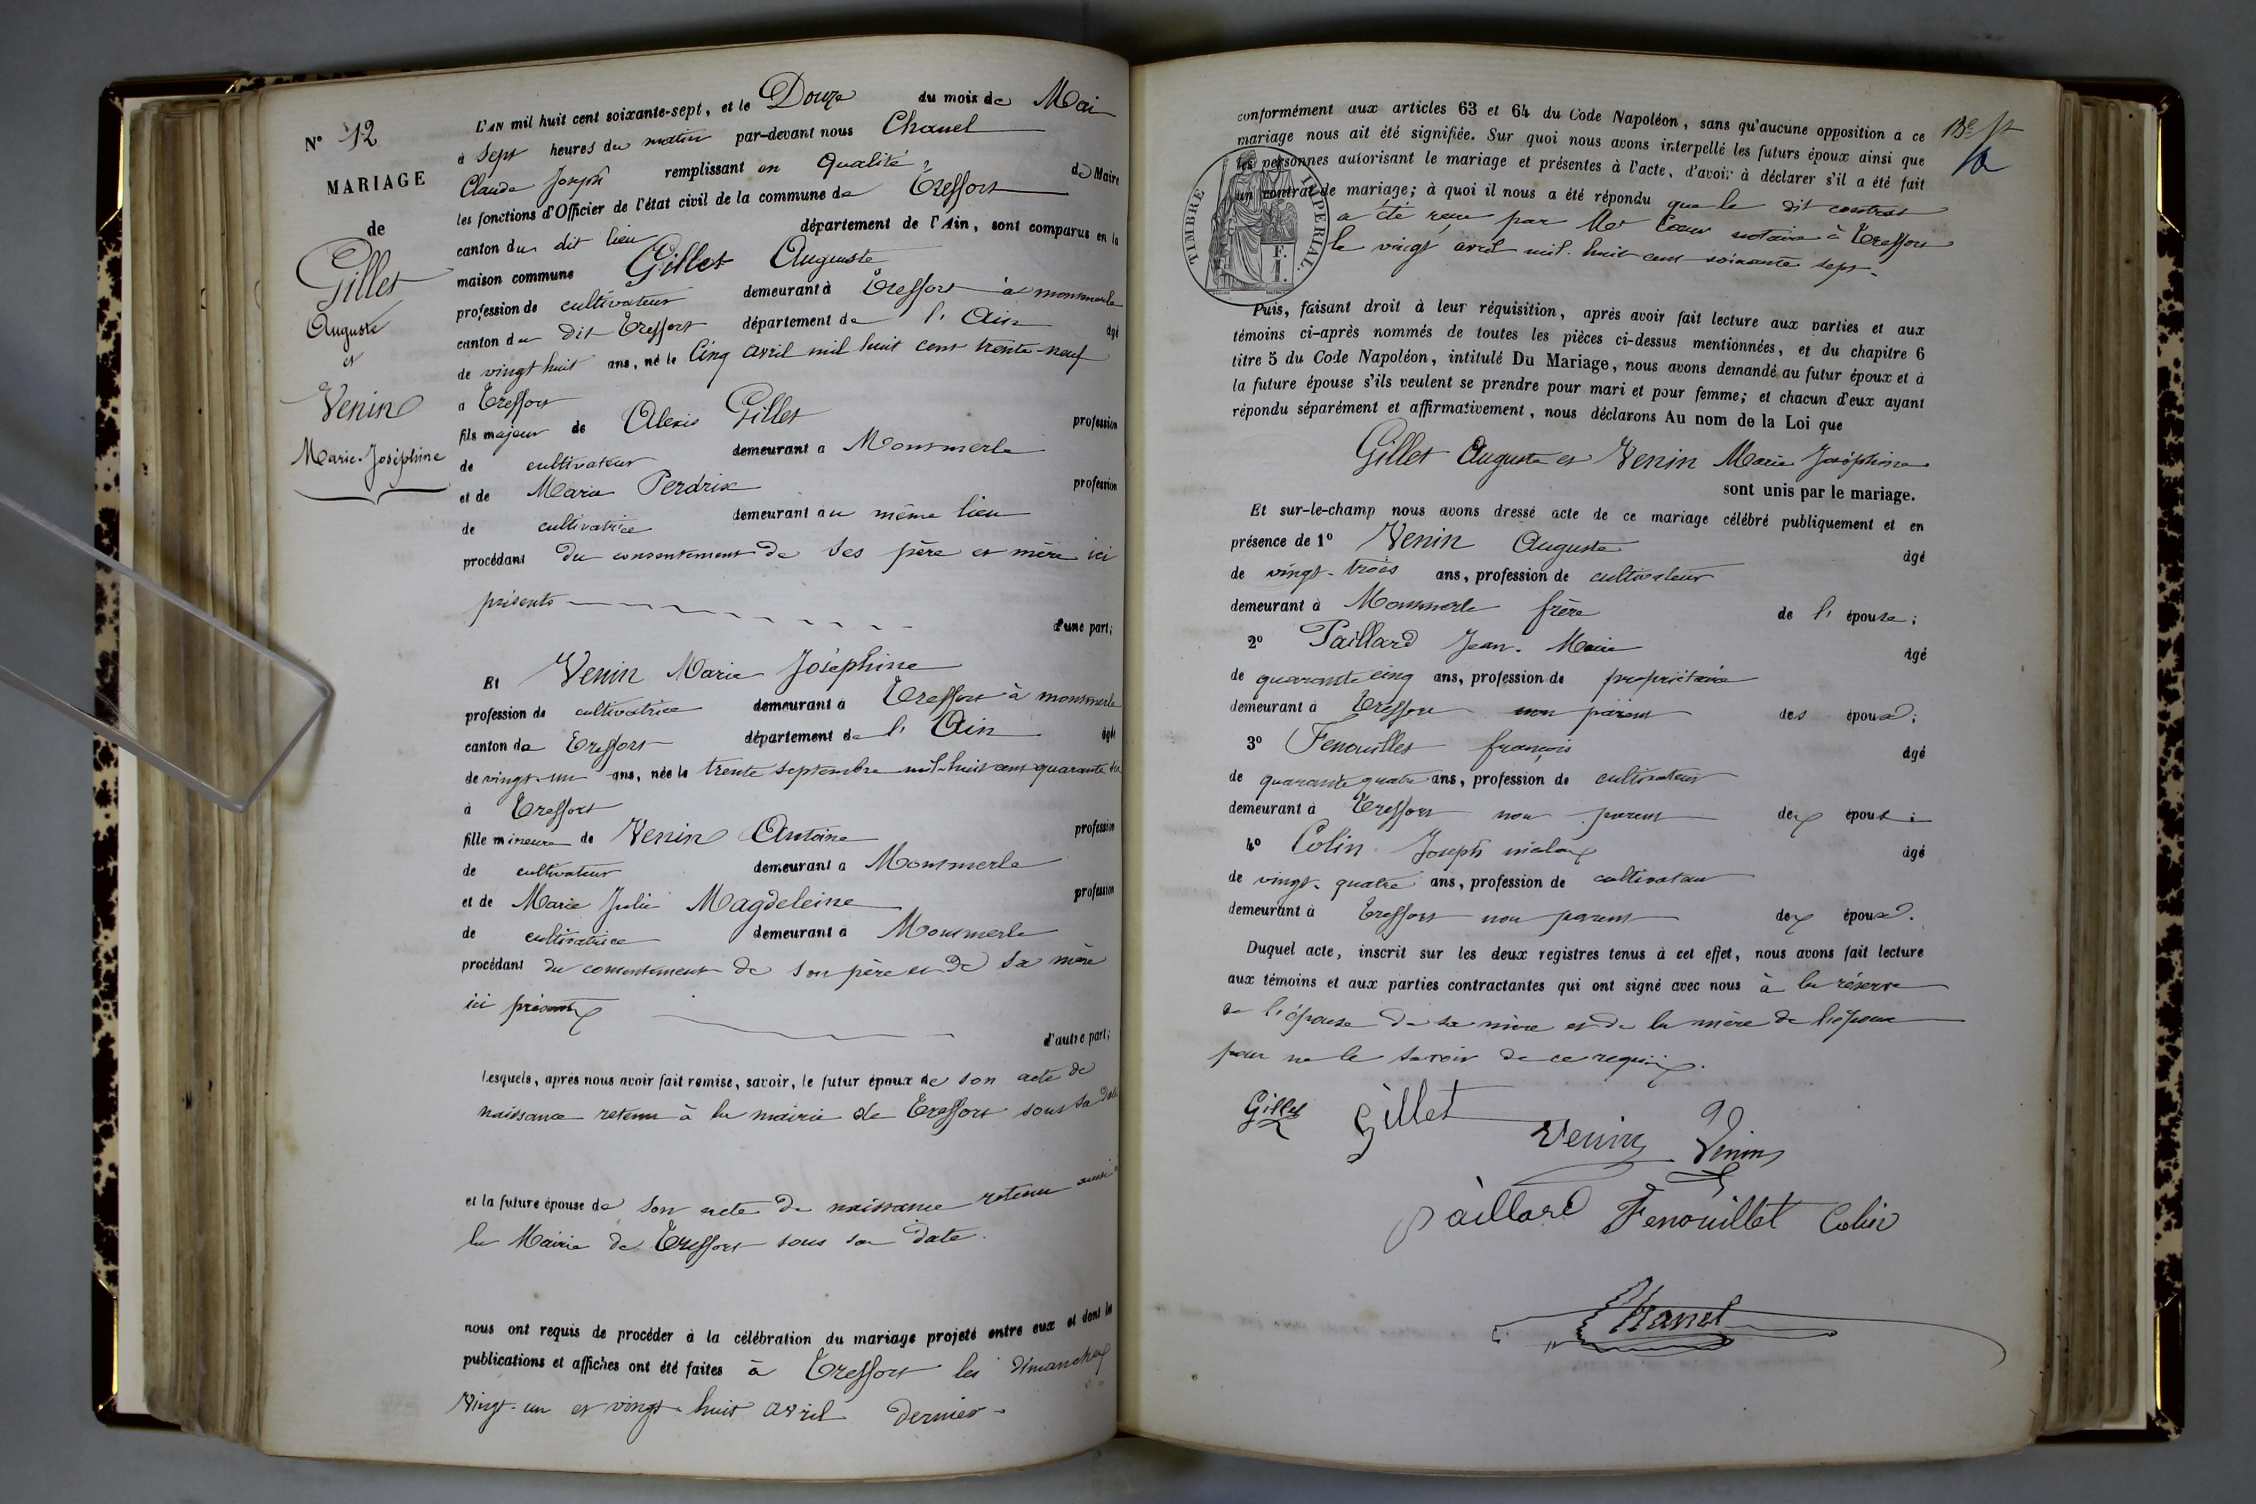 N° 12
MARIAGE
de
Gillet
Auguste
et
Venin
Marie-Joséphine
L'AN mil huit cent soixante-sept, et le Douze du mois de Mai
à Sept heures du matin par-devant nous Chanel
Claude Joseph remplissant en qualité de Maire
les fonctions d'Officier de l'état civil de la commune de Treffort
canton du dit lieu département de l'Ain, sont comparus en la
maison commune Gillet Auguste
profession de cultivateur demeurant à Treffort à monmerle
canton du dit Treffort département de l'Ain âgé
de vingt huit ans, né le Cinq avril mil huit cent trente-neuf
à Treffort
fils majeur de Alexis Gillet profession
de cultivateur demeurant à Monmerle
et de Marie Perdrix profession
de cultivatrice demeurant au même lieu
procédant du consentement de ses père et mère ici
présents
d'une part;
Et Venin Marie Joséphine
profession de cultivatrice demeurant à Treffort à monmerle
canton de Treffort département de l'Ain âgée
de vingt-un ans, née le trente septembre mil-huit cent quarante
à Treffort
fille mineure de Venin Antoine profession
de cultivateur demeurant à Monmerle
et de Marie Julie Magdeleine profession
de cultivatrice demeurant à Monmerle
procédant du consentement de son père et de sa mère
ici présents
d'autre part;
Lesquels, après nous avoir fait remise, savoir, le futur époux de son acte de
naissance retenu à la mairie de Treffort sous sa date
et la future épouse de son acte de naissance retenu aussi à
la Mairie de Treffort sous sa date.
nous ont requis de procéder à la célébration du mariage projeté entre eux et dont les
publications et affiches ont été faites à Treffort les dimanches
vingt-un et vingt-huit avril dernier.
conformément aux articles 63 et 64 du Code Napoléon, sans qu'aucune opposition à ce
mariage nous ait été signifiée. Sur quoi nous avons interpellé les futurs époux ainsi que
les personnes autorisant le mariage et présentes à l'acte, d'avoir à déclarer s'il a été fait
un contrat de mariage; à quoi il nous a été répondu que le dit contrat
a été reçu par Me Coeur notaire à Treffort
le vingt avril mil huit cent soixante sept.
TIMBRE IMPERIAL.
F.
I.
Puis, faisant droit à leur réquisition, après avoir fait lecture aux parties et aux
témoins ci-après nommés de toutes les pièces ci-dessus mentionnées, et du chapitre 6
titre 5 du Code Napoléon, intitulé Du Mariage, nous avons demandé au futur époux et à
la future épouse s'ils veulent se prendre pour mari et pour femme; et chacun d'eux ayant
répondu séparément et affirmativement, nous déclarons Au nom de la Loi que
Gillet Auguste et Venin Marie Joséphine
sont unis par le mariage.
Et sur-le-champ nous avons dressé acte de ce mariage célébré publiquement et en
présence de 1° Venin Auguste âgé
de vingt-trois ans, profession de cultivateur
demeurant à Monmerle frère de l'épouse;
2° Paillard Jean-Marie âgé
de quarante cinq ans, profession de propriétaire
demeurant à Treffort non parent des époux;
3° Fenouillet françois âgé
de quarante quatre ans, profession de cultivateur
demeurant à Treffort non parent des époux;
4° Colin Joseph nicolas âgé
de vingt-quatre ans, profession de cultivateur
demeurant à Treffort non parent des époux.
Duquel acte, inscrit sur les deux registres tenus à cet effet, nous avons fait lecture
aux témoins et aux parties contractantes qui ont signé avec nous à la réserve
de l'épouse de sa mère et de la mère de l'époux
pour ne le savoir de ce requis.
Gillet Gillet Venin Venin
Paillard Fenouillet Colin
Chanel